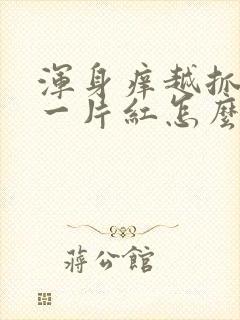 渾身癢越抓
一片紅怎麼
蔣公館